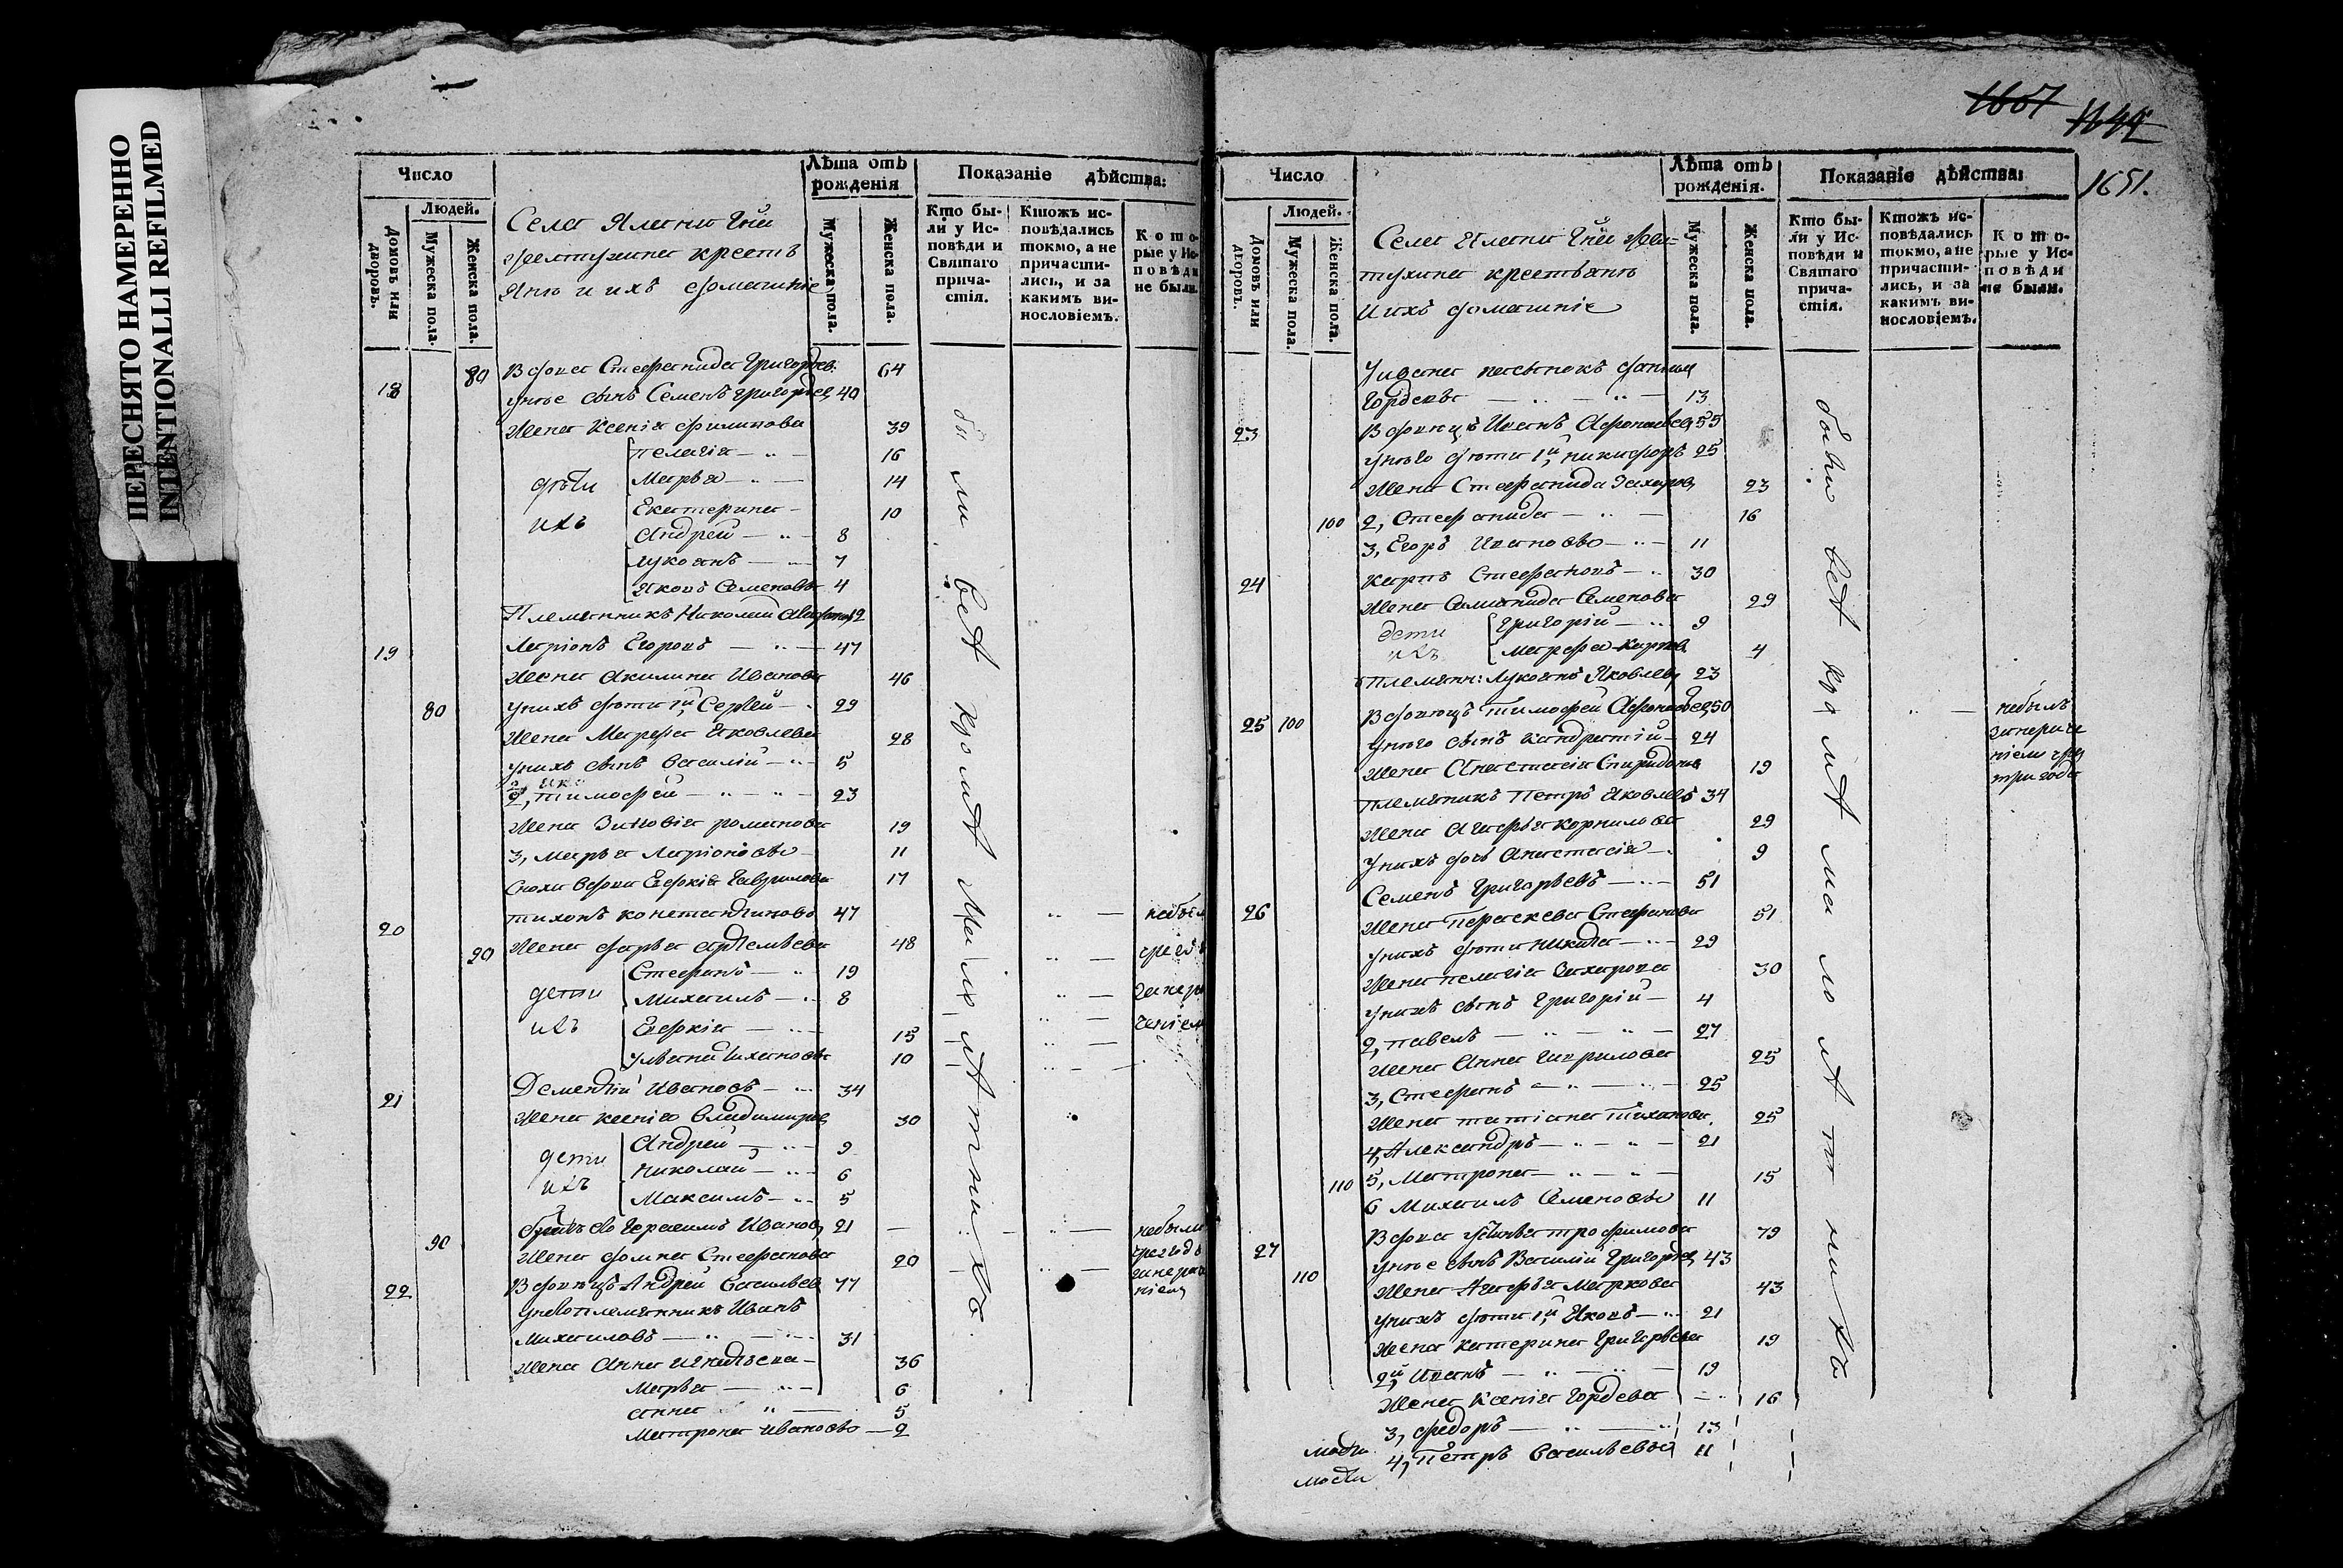 ПЕРЕСНЯТО НАМЕРЕННО
INTENTIONALLI REFILMED
Число
Людей.
Домовъ или дворовъ.
Мужеска пола.
Женска пола.
Лѣта отъ рожденія
Мужеска пола.
Женска пола.
Показаніе дѣйства:
Кто бы-
ли у Ис-
повѣди и
Святаго
прича-
стія.
Ктожъ ис-
повѣдались
токмо, а не
причасти-
лись, и за
какимъ ви-
нословіемъ.
Кото-
рые у Ис-
повѣди
не были.
крестъ
яне и ихъ домашніе
80 Вдова Стефанида Григорьев. 64
18 унее сынъ Семенъ Григорьев 40
Жена Ксенія Филипова 39
дѣти ихъ
Пелагія 16
Марья 14
Екатерина 10
Андрей 8
Лукоянъ 7
Яковъ Семеновы 4
Племянникъ Николай 12
19 Ларіонъ Егоровъ 47
Жена Акилина Иванова 46
80 унихъ дѣти 1й, Сергѣй 29
Жена Марфа Яковлева 28
унихъ сынъ Василій 5
2, Тимофей 23
Жена Зиновія Романова 19
3, Марья Ларіоновы 11
Сноха вдова Евдокія Гаврилова 17
20 Тихонъ Констандиновъ 47
90 Жена Дарья Артемьева 48
дети ихъ
Стефанъ 19
Михаилъ 8
Евдокія 15
Ульяна Тихановы 10
21 Дементій Ивановъ 34
Жена Ксенія Владимиров 30
дети ихъ
Андрей 9
Николай 6
Максимъ 5
90 братъ его Герасимъ Иванов 21
Жена Домна Стефанова 20
22 Вдовецъ Андрей Васильев 77
унево племянникъ Иванъ
Михаиловъ 31
Жена Анна Игнатьева 36
Марья 6
Анна 5
Матрона Ивановы 2
были всѣ кромѣ малолѣтнихъ
1607
1644
1651.
Число
Людей.
Домовъ или дворовъ.
Мужеска пола.
Женска пола.
Лѣта отъ рожденія.
Мужеска пола.
Женска пола.
Показаніе дѣйства:
Кто бы-
ли у Ис-
повѣди и
Святаго
прича-
стія.
Ктожъ ис-
повѣдались
токмо, а не
причасти-
лись, и за
какимъ ви-
нословіемъ.
Кото-
рые у Ис-
повѣди
не были.
крестьяне
и ихъ домашніе
Гордеевъ 13
23 Вдовецъ Иванъ Афонасьев 55
унього дѣти 1й, Никифоръ 25
Жена Стефанида Захаров 23
100 2, Стефанида 16
3, Егоръ Ивановы 11
24 Карпъ Стефановъ 30
Жена Саламанида Семенова 29
дети ихъ
Григорій 9
Марфа Карпов 4
племян: Лукоянъ Яковлев 23
25 100 Вдовецъ Тимофей Афонасьев 50 небылъ
унього сынъ Кандратій 24
Жена Анастасія Спиридонов 19
племяникъ Петръ Яковлев 34 три года
Жена Агафья Корнилова 29
унихъ дочь Анастасія 9
26 Семенъ Григорьевъ 51
Жена Параскева Стефанова 51
унихъ дѣти Никита 29
Жена Пелагія Захарова 30
унихъ сынъ Григорій 4
2, Павелъ 27
Жена Анна Гаврилова 25
3, Стефанъ 25
Жена Татіана Тиханова 25
4, Александръ 21
110 5, Матрона 15
6 Михаилъ Семеновы 11
27 Вдова Устинья Трофимова 79
110 унее сынъ Василій Григорьев 43
Жена Агафья Маркова 43
унихъ дѣти 1й, Яковъ 21
Жена Катерина Григорьева 19
2й, Иванъ 19
Жена Ксенія Гордева 16
3, Федоръ 13
4, Петръ Васильевы 11
были всѣ кромѣ малолѣтнихъ